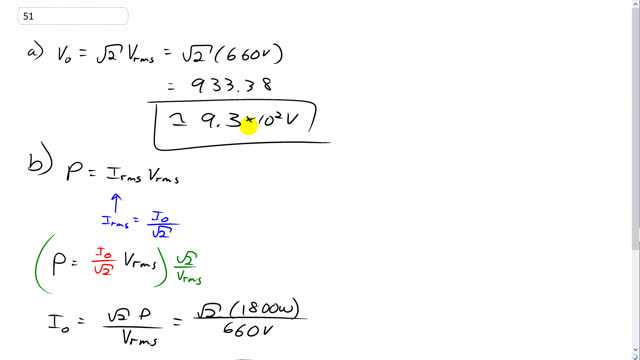 51
a) V₀ = √2 Vrms = √2 (660V)
= 933.38
≃ 9.3 × 10² V
b) P = Irms Vrms
Irms = I₀/√2
( P = I₀/√2 Vrms ) √2/Vrms
I₀ = √2 P/Vrms = √2 (1800W)/660V